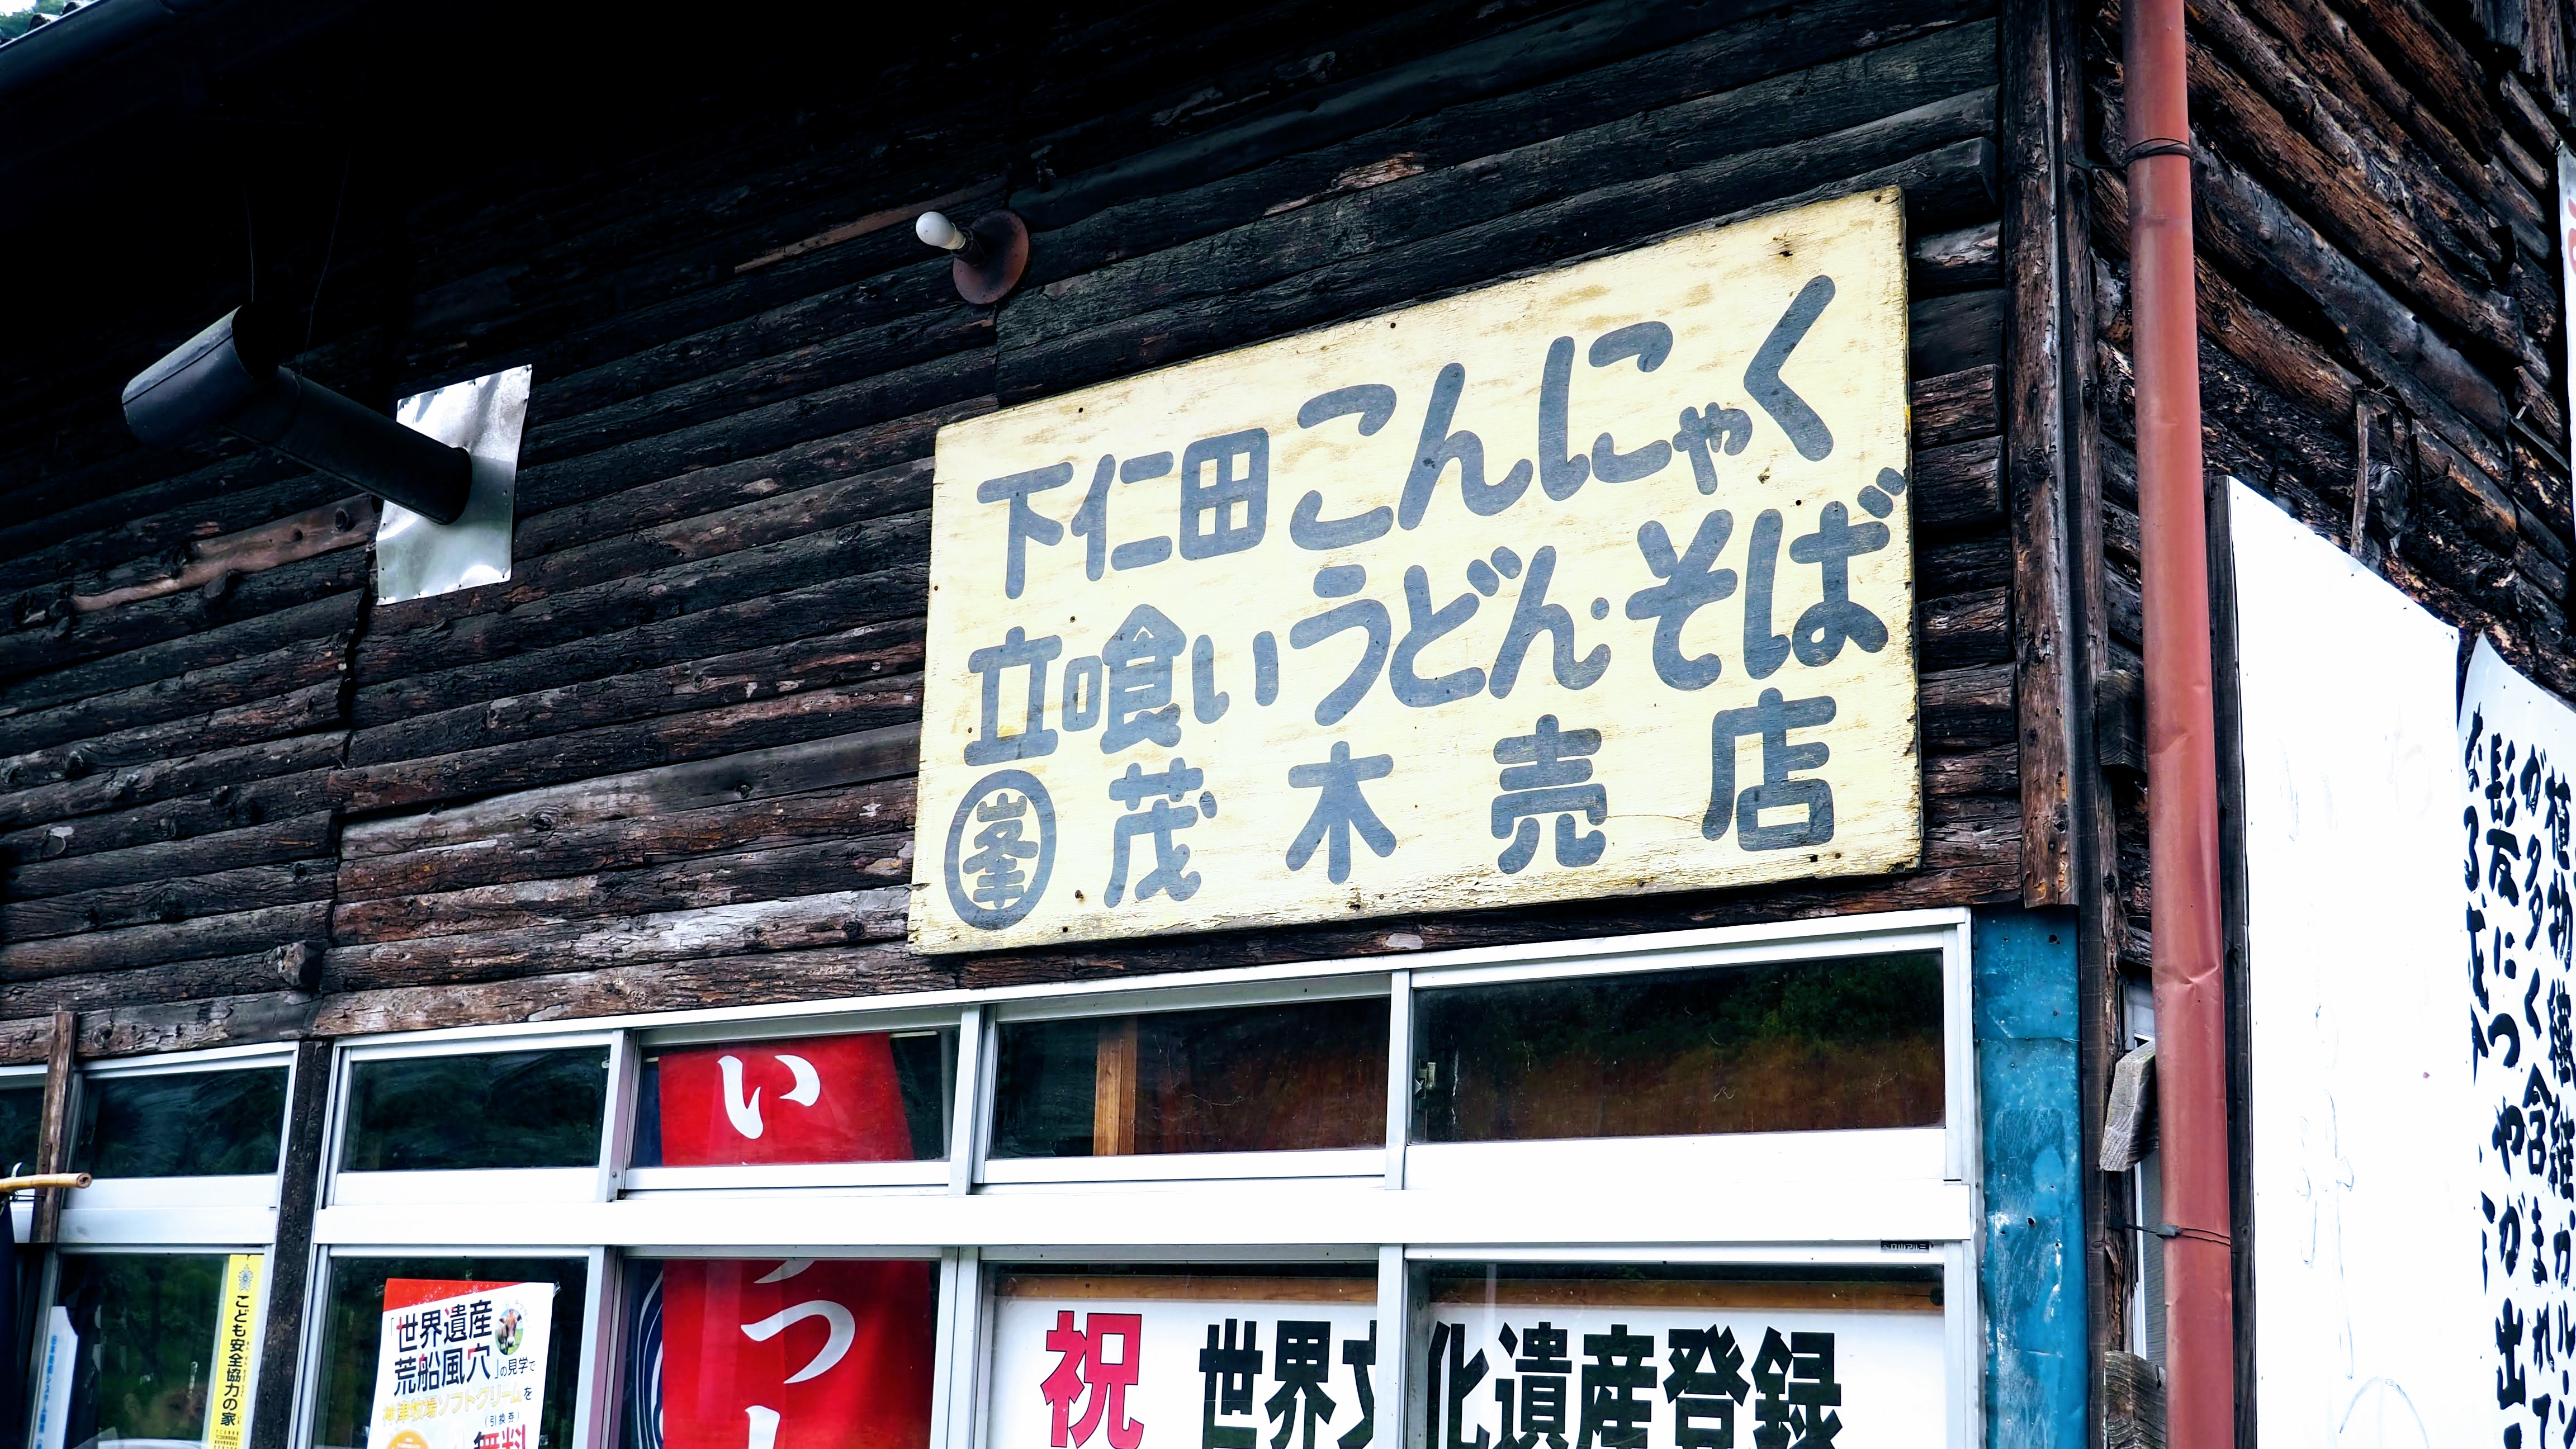 下仁田こんにゃく
立喰いうどん・そば
峯 茂木売店
い
っ
祝 世界文化遺産登録
「世界遺産
荒船風穴」の見学で
神津牧場ソフトクリームを
(引換券)
無料
こども安全協力の家
植物繊維・カルシ
がタタく含まれて
髪につやが出